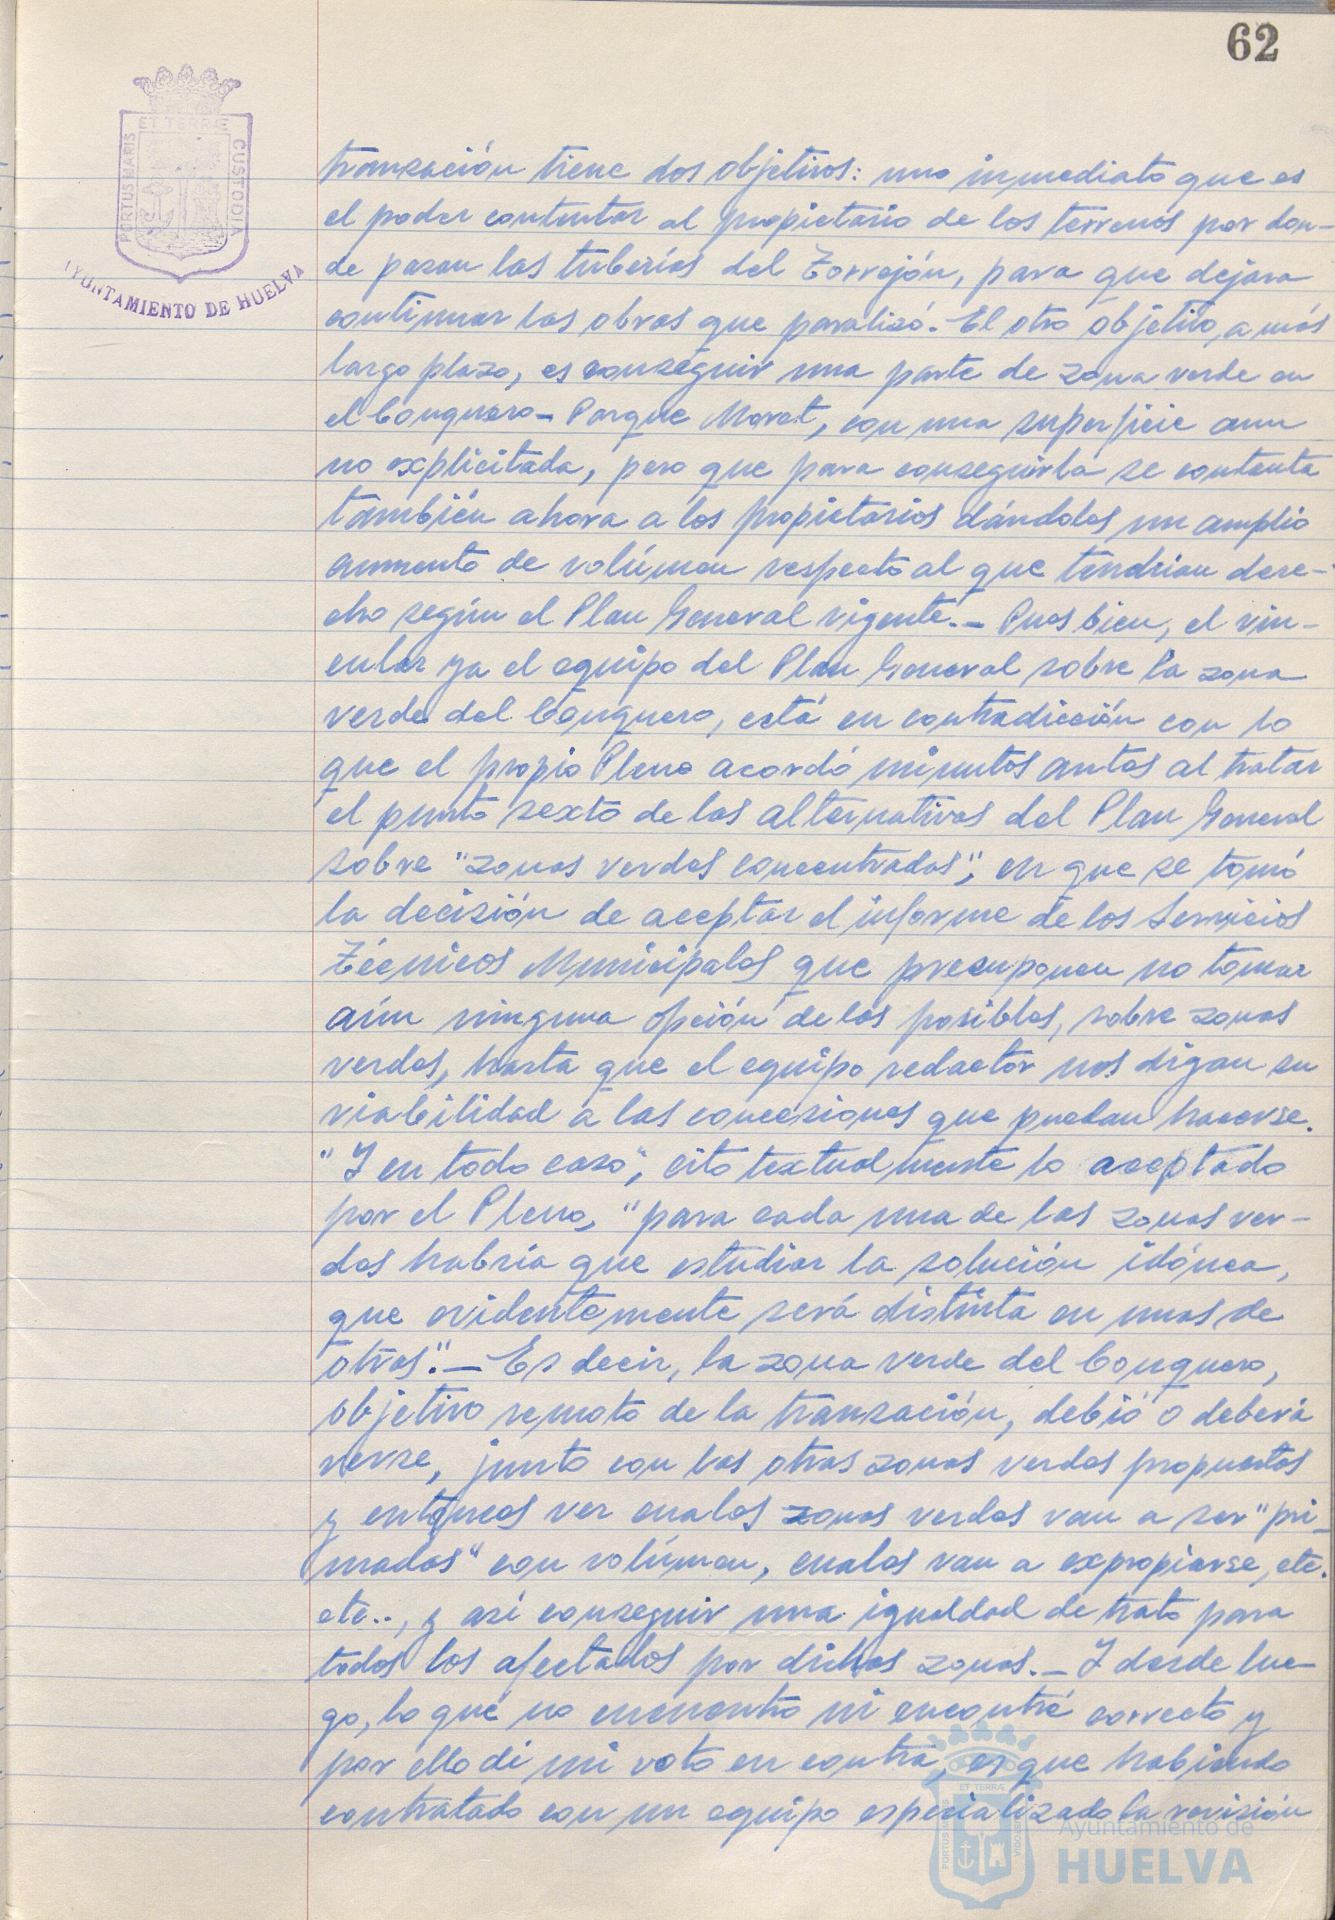 62
ET TERRÆ
PORTUS MARIS
CUSTODIA
AYUNTAMIENTO DE HUELVA
tranzación tiene dos objetivos: uno inmediato que es
el poder contentar al propietario de los terrenos por don-
de pazan las tuberías del Torrejón, para que dejara
continuar las obras que paralizó. El otro objetivo, a más
largo plazo, es conzeguir una parte de zona verde en
el Conquero - Parque Moret, con una superficie aun
no explicitada, pero que para conseguirla se contenta
también ahora a los propietarios dándoles un amplio
aumento de volúmen respecto al que tendrian dere-
cho según el Plan General vigente.- Pues bien, el vin-
cular ya el equipo del Plan General sobre la zona
verde del Conquero, está en contradicción con lo
que el propio Pleno acordó minutos antes al tratar
el punto sexto de las alternativas del Plan General
sobre "zonas verdes concentradas", en que se tomó
la decisión de aceptar el informe de los Servicios
Técnicos Municipales que presuponen no tomar
aún ninguna opción de las posibles, sobre zonas
verdes, hasta que el equipo redactor nos digan su
viabilidad a las conceziones que puedan hacerse.
"Y en todo cazo", cito textualmente lo aceptado
por el Pleno, "para cada una de las zonas ver-
des habría que estudiar la solución idónea,
que evidentemente será distinta en unas de
otras".- Es decir, la zona verde del Conquero,
objetivo remoto de la tranzación, debió o deberá
verse, junto con las otras zonas verdes propuestas
y entonces ver cuales zonas verdes van a ser "pri-
madas" con volúmen, cuales van a expropiarse, etc.
etc.., y así conseguir una igualdad de trato para
todos los afectados por dichas zonas.- Y desde lue-
go, lo que no encuentro ni encontré correcto y
por ello di mi voto en contra, es que habiendo
contratado con un equipo especializado la revisión
ET TERRÆ
PORTUS MARIS
CUSTODIA
Ayuntamiento de
HUELVA